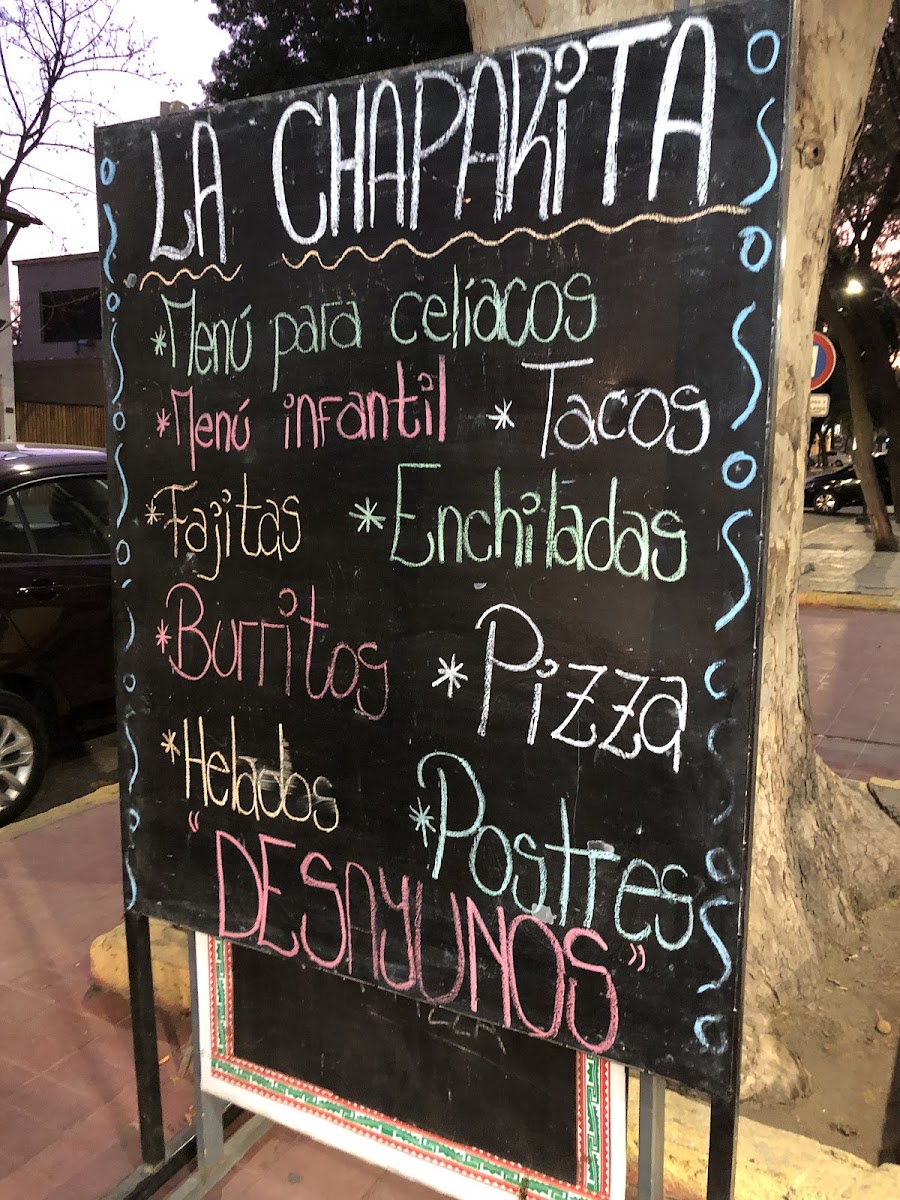 LA CHAPARiTA
*Menú para celíacos
*Menú infantil *Tacos
*Fajitas *Enchiladas
*Burritos *Pizza
*Helados *Postres
"DESAYUNOS"